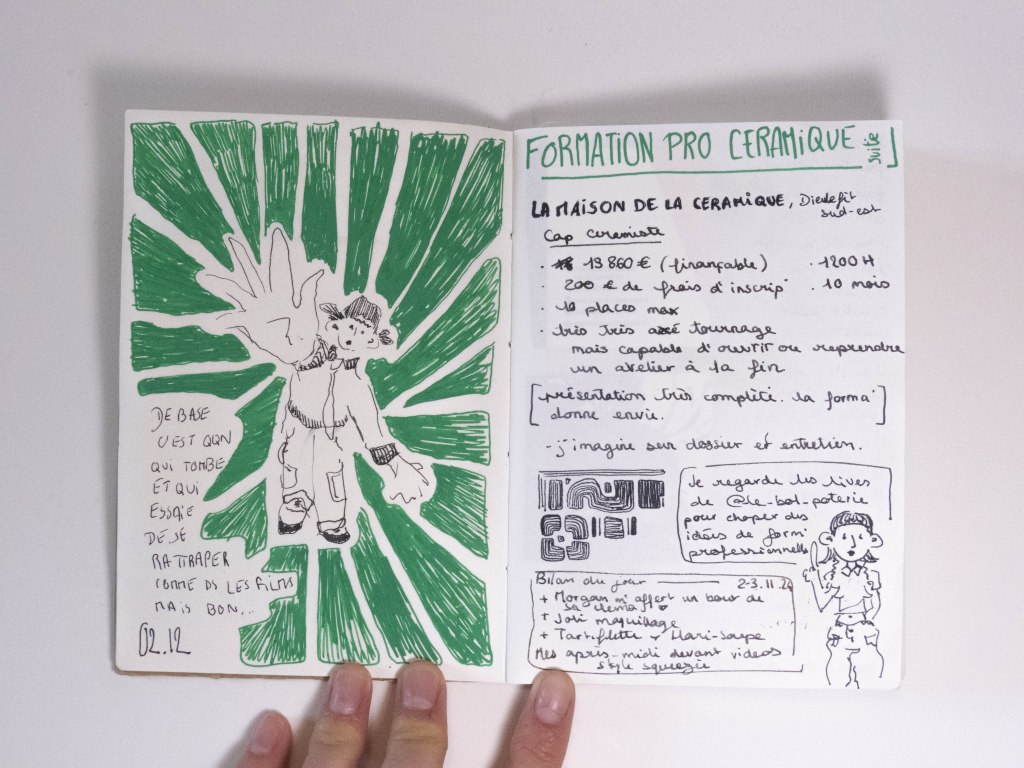 DE BASE
C'EST QQN
QUI TOMBE
ET QUI
ESSAIE
DE SE
RATTRAPER
COMME DS LES FILMS
MAIS BON...
02.12
FORMATION PRO CERAMIQUE suite
LA MAISON DE LA CERAMIQUE, Dieulefit
sud-est
Cap ceramiste
· 13 860 € (finançable)
· 1200 H
· 200 € de frais d'inscrip°
· 10 mois
· 10 places max
· très très axé tournage
mais capable d'ouvrir ou reprendre
un atelier à la fin
[présentation très complète. la forma°
donne envie.]
- j'imagine sur dossier et entretien.
Je regarde les lives
de @le-bol-poterie
pour choper des
idées de form°
professionnelle
Bilan du jour 2-3.11.
+ Morgan m'offert un bout de
sa
+ Joli maquillage
+ Tartiflette Hari-soupe
Mes après-midi devant videos
style squeezie